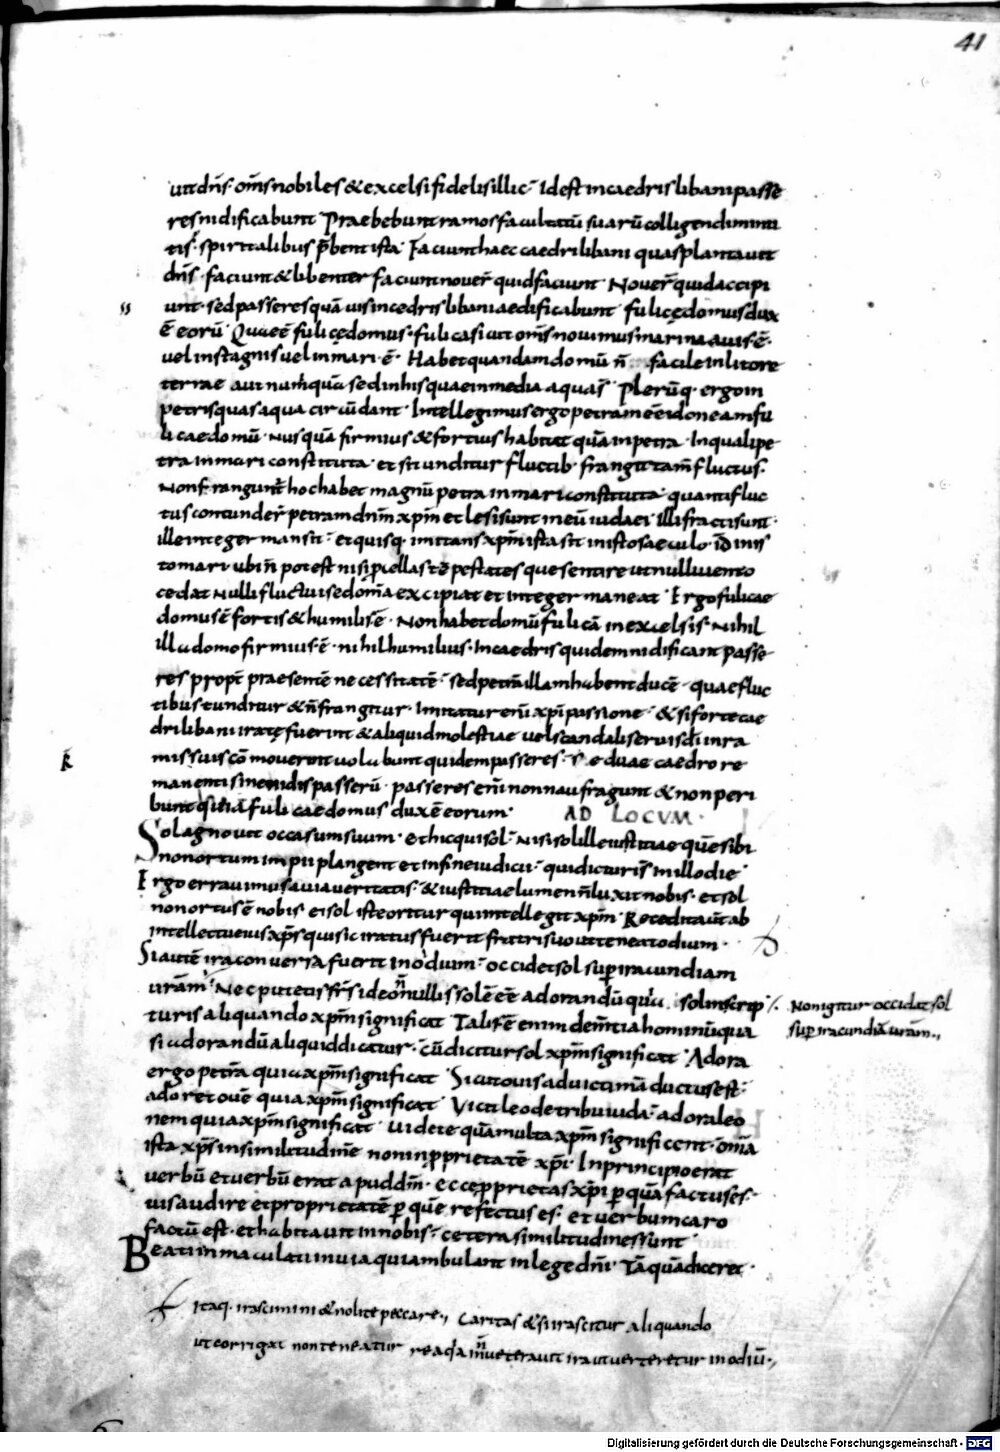 41
uit dn̄s· om̄s nobiles & excelsi fideles illic· Id est in caedris libani passe
res nidificabunt Praebebunt ramos facultatū suarū colligendi
tis· spiritalibus p̄bent ista· Faciunt haec caedri libani quas plantauit
dn̄s· faciunt & libenter faciunt nouer̄ quid faciunt Nouer̄ quid accipi
unt· sed passeres quā uis in cedris libani aedificabunt fulicę domus dux
ē eorū Quae ē fulicę domus· fulica sicut om̄s nouimus marina auis ē·
uel in stagnis uel in mari ē· Habet quandam domū n̄ facile in litore
terrae aut numquā sed in his quae in media aqua s̄ Plerūq· ergo in
petris quas aqua circūdant· Intellegimus ergo petram eē idoneam fu
licae domū· Nusquā firmius & fortius habitat quā in petra· In quali pe
tra in mari constituta· et si tunditur fluctib· frangit tam̄ fluctus·
Non frangunt̄ hoc habet magnū petra in mari constituta· quanti fluc
tus contunder̄ petram dn̄m xp̄m et lesi sunt in eū iudaei· Illi fracti sunt·
ille integer mansit· et quisq· imitans xp̄m ista sit in isto saeculo· id in is
to mari ubi n̄ potest nisi procellas tēpestatesque sentire ut nulli uento
cedat nulli fluctui sed om̄a excipiat et integer maneat· Ergo fulicae
domus ē fortis & humilis ē· Non habet domū fulicā in excelsis· Nihil
illa domo firmius ē· nihil humilius· In caedris quidem nidificant passe
res propt̄ praesentē necessitatē· sed petrā illam habent ducē· quae fluc
tibus tunditur & n̄ frangitur· Imitatur eni xp̄i passione· & si forte cae
dri libani iratę fuerint & aliquid molestiae uel scandali seruis dī in ra
mis suis cōmouerint uolabunt quidem passeres· s ē duae caedro re
manenti sine nidis passerū· passeres eni non naufragunt & non peri
bunt quia fulicae domus dux ē eorum· AD LOCVM·
Sol agnouit occasum suum· et hic qui sol· Nisi sol ille iustitiae quē sibi
non ortum impii plangent et in fine iudicii· qui dicturi s̄ in illo die
Ergo errauimus a uia ueritatis· & iustitiae lumen n̄ luxit nobis· et sol
non ortus ē nobis· ei sol iste oritur qui intellegit xp̄m· Recedit aūt ab
intellectu eius xp̄s quisic iratus fuerit fratri suo ut teneat odium·
Si autē ira conuersa fuerit in odium· occidet sol sup iracundiam
urām· Nec putetis frs̄ ideo nnullis solē eē adorandū quia sol in scrip /. Non igitur occidat sol
sup iracundiā uram.,
turis aliquando xp̄m significat Talis ē enim dem̄tia hominū quia
si adorandū aliquid dicatur· cū dicitur sol xp̄m significat· Adora
ergo petrā quia xp̄m significat Sicut ouis ad uictimā ductus est·
adoret ouē quia xp̄m significat Vicit leo de tribu iuda· adora leo
nem quia xp̄m significat· Videte quā multa xp̄m significent· om̄ia
ista xp̄s in similitudinē non in pprietatē xp̄i· In principio erat
uerbū et uerbū erat apud dm̄· ecce pprietas xp̄i p quā factus es·
uis audire et proprietatē p quē refectus es· et uerbum caro
factū est· et habitauit in nobis· cetera similitudines sunt
Beati inmaculati in uia qui ambulant in lege dn̄i Tāquā diceret·
Itaq· irascimini & nolite peccare., Caritas & si irascitur aliquando
ut corrigat non teneatur re inueterauit ira ut uerteretur in odiū.,
Digitalisierung gefördert durch die Deutsche Forschungsgemeinschaft - DFG